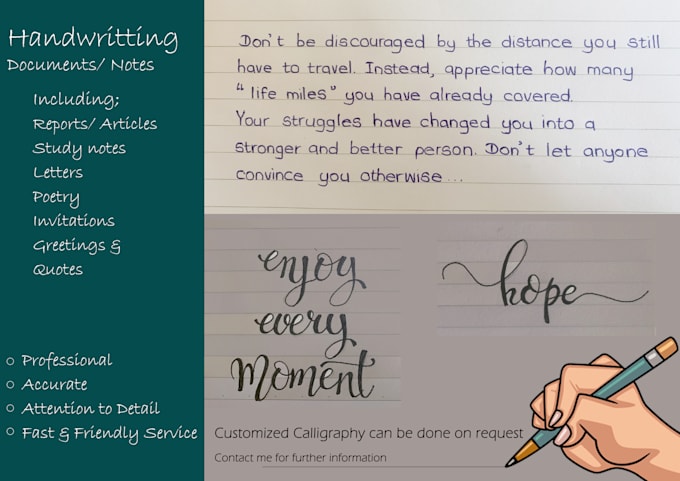 Handwritting
Documents/ Notes
Including;
Reports/ Articles
Study notes
Letters
Poetry
Invitations
Greetings &
Quotes
Professional
Accurate
Attention to Detail
Fast & Friendly Service
Don't be discouraged by the distance you still
have to travel. Instead, appreciate how many
"life miles" you have already covered.
Your struggles have changed you into a
stronger and better person. Don't let anyone
convince you otherwise...
enjoy
every
Moment
hope
Customized Calligraphy can be done on request
Contact me for further information